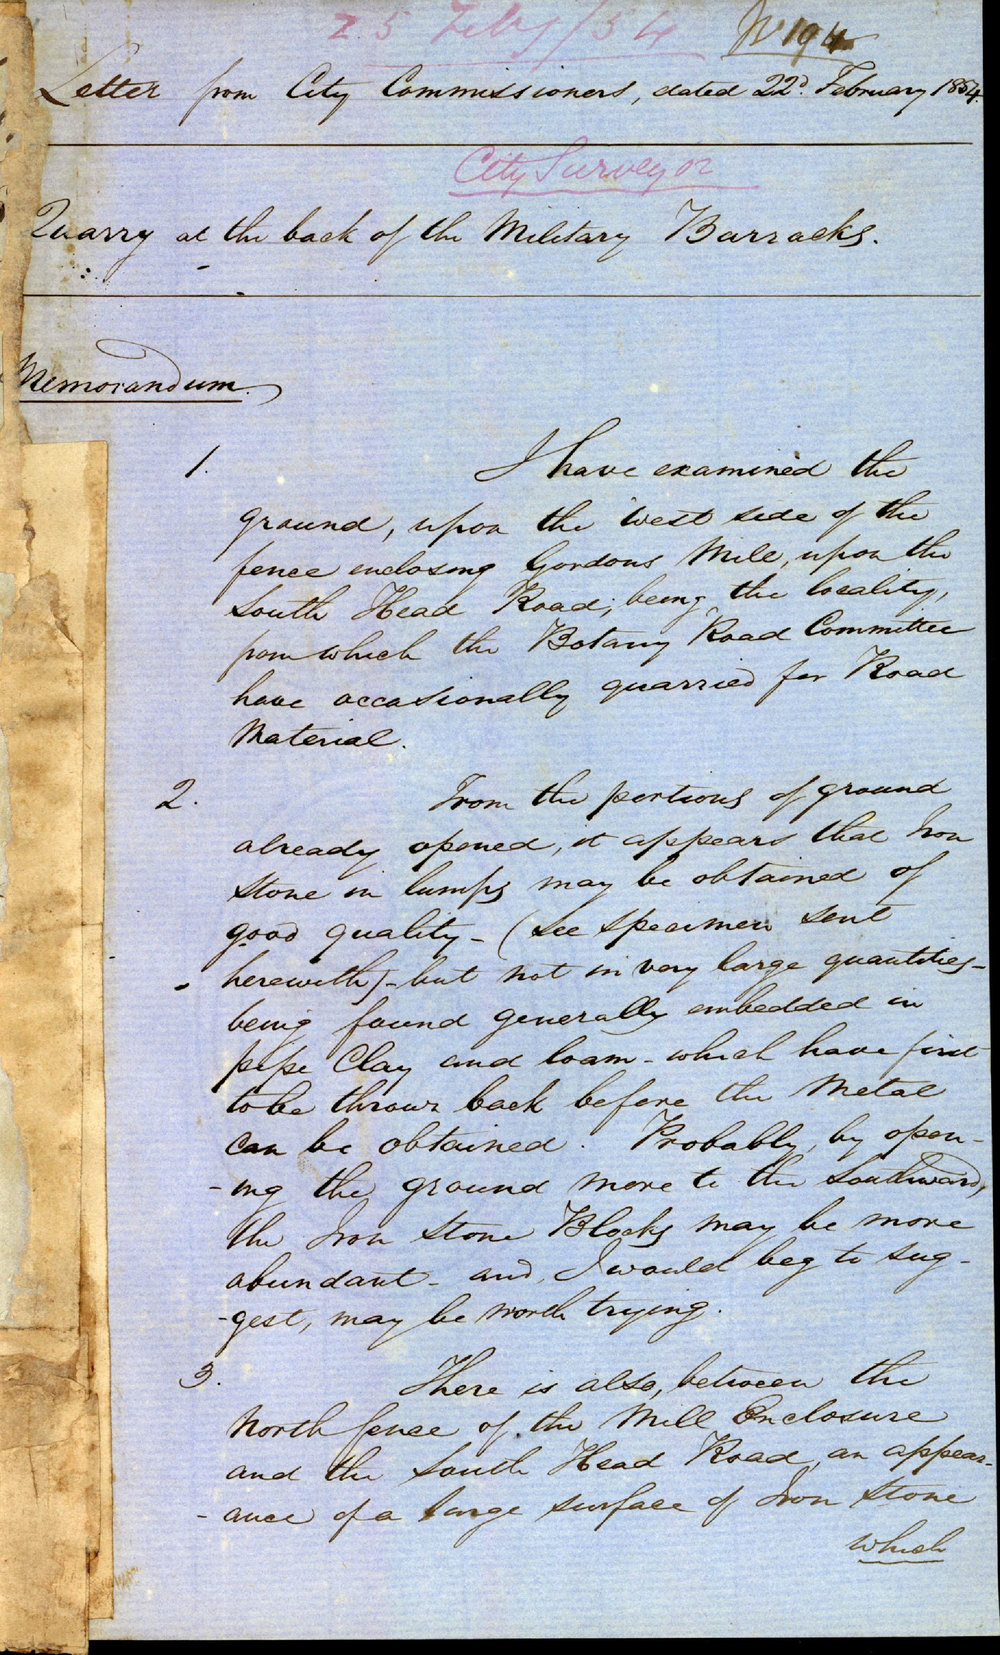 25 Feby/54
No 194
Letter from City Commissioners, dated 22d. February 1854.
City Surveyor
Quarry at the back of the Military Barracks.
Memorandum.
1. I have examined the
ground, upon the West side of the
fence enclosing Gordons Mill, upon the
South Head Road; being the locality,
from which the Botany Road Committee
have occasionally quarried for Road
Material.
2. From the portions of ground
already opened, it appears that Iron
Stone in lumps may be obtained of
good quality - (see specimen sent
herewith) - but not in very large quantities -
being found generally embedded in
pipe Clay and loam - which have first
to be thrown back before the Metal
can be obtained. Probably, by open-
-ing the ground more to the Southward,
the Iron Stone Blocks may be more
abundant - and, I would beg to sug-
-gest, may be worth trying.
3. There is also, between the
North fence of the Mill Enclosure
and the South Head Road, an appear-
-ance of a large surface of Iron Stone
which